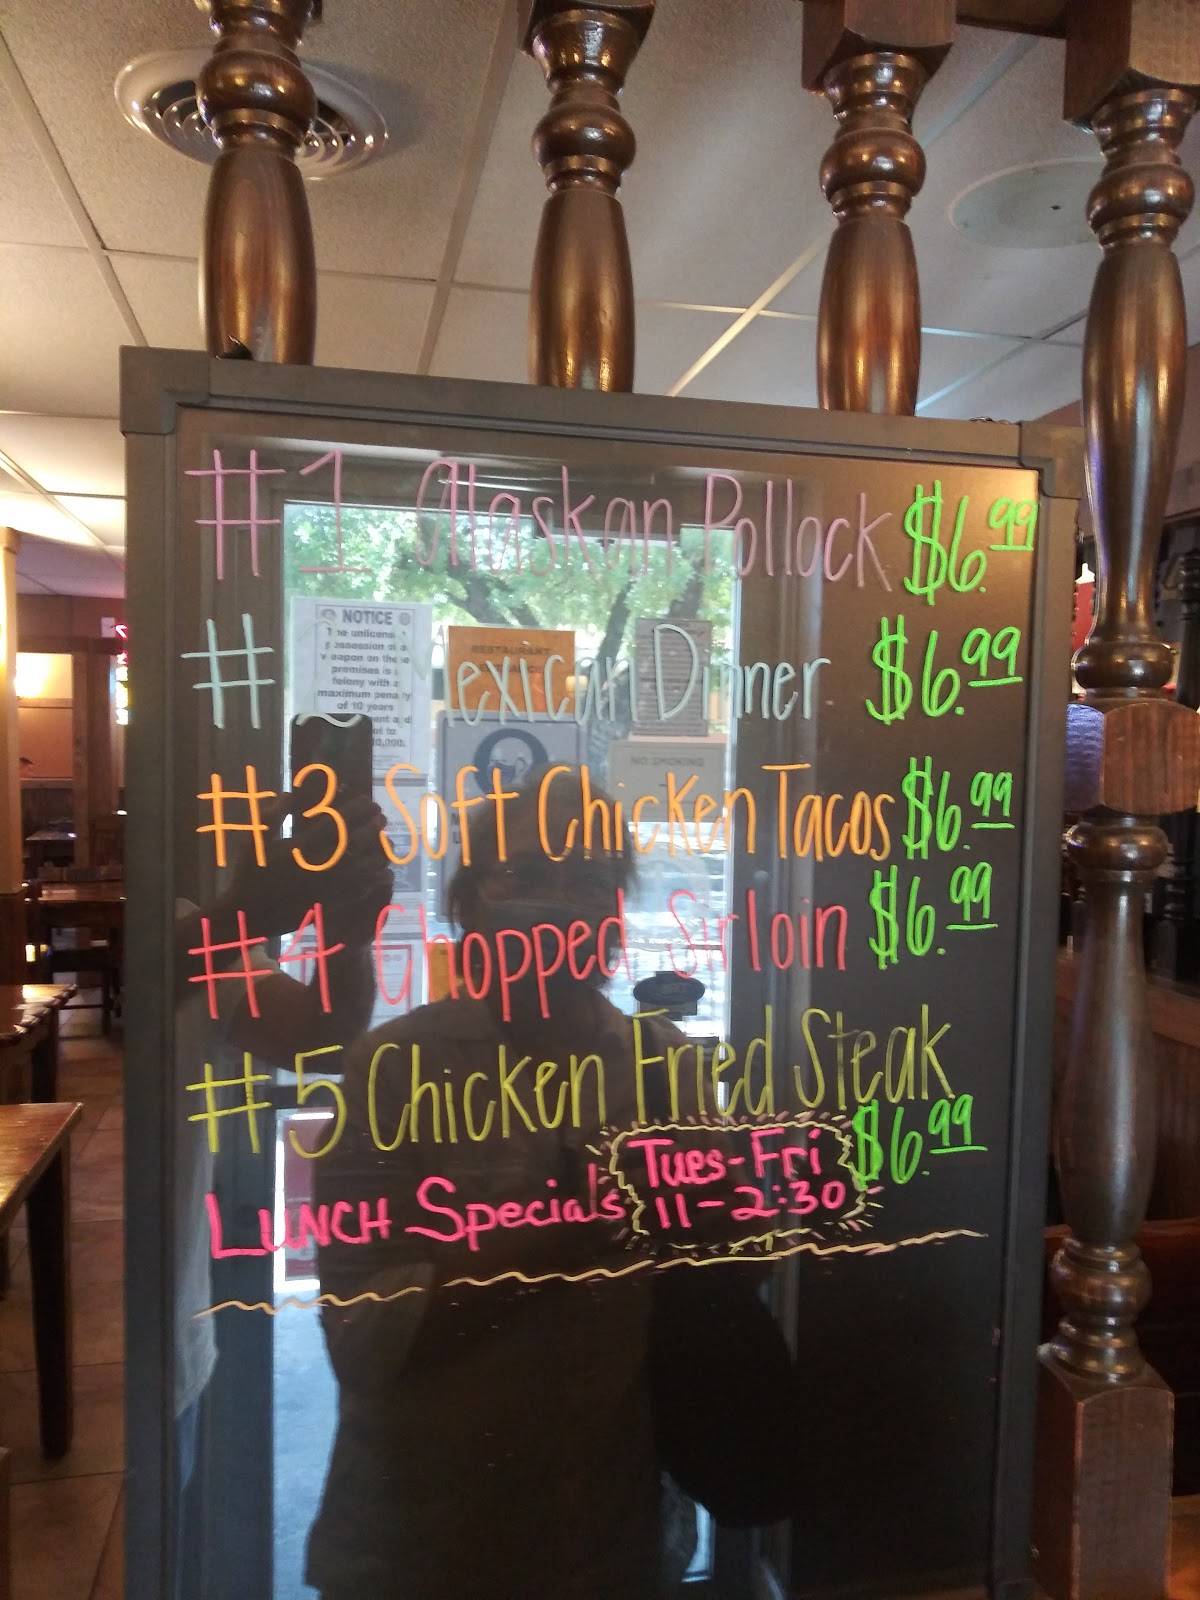 #1 Alaskan Pollock $6.99
#2 Mexican Dinner $6.99
#3 Soft Chicken Tacos $6.99
#4 Chopped Sirloin $6.99
#5 Chicken Fried Steak
$6.99
LUNCH Specials
Tues-Fri
11-2:30
NOTICE
The unlicensed
possession of a
weapon on these
premises is a
felony with a
maximum penalty
of 10 years
RESTAURANT
NO SMOKING